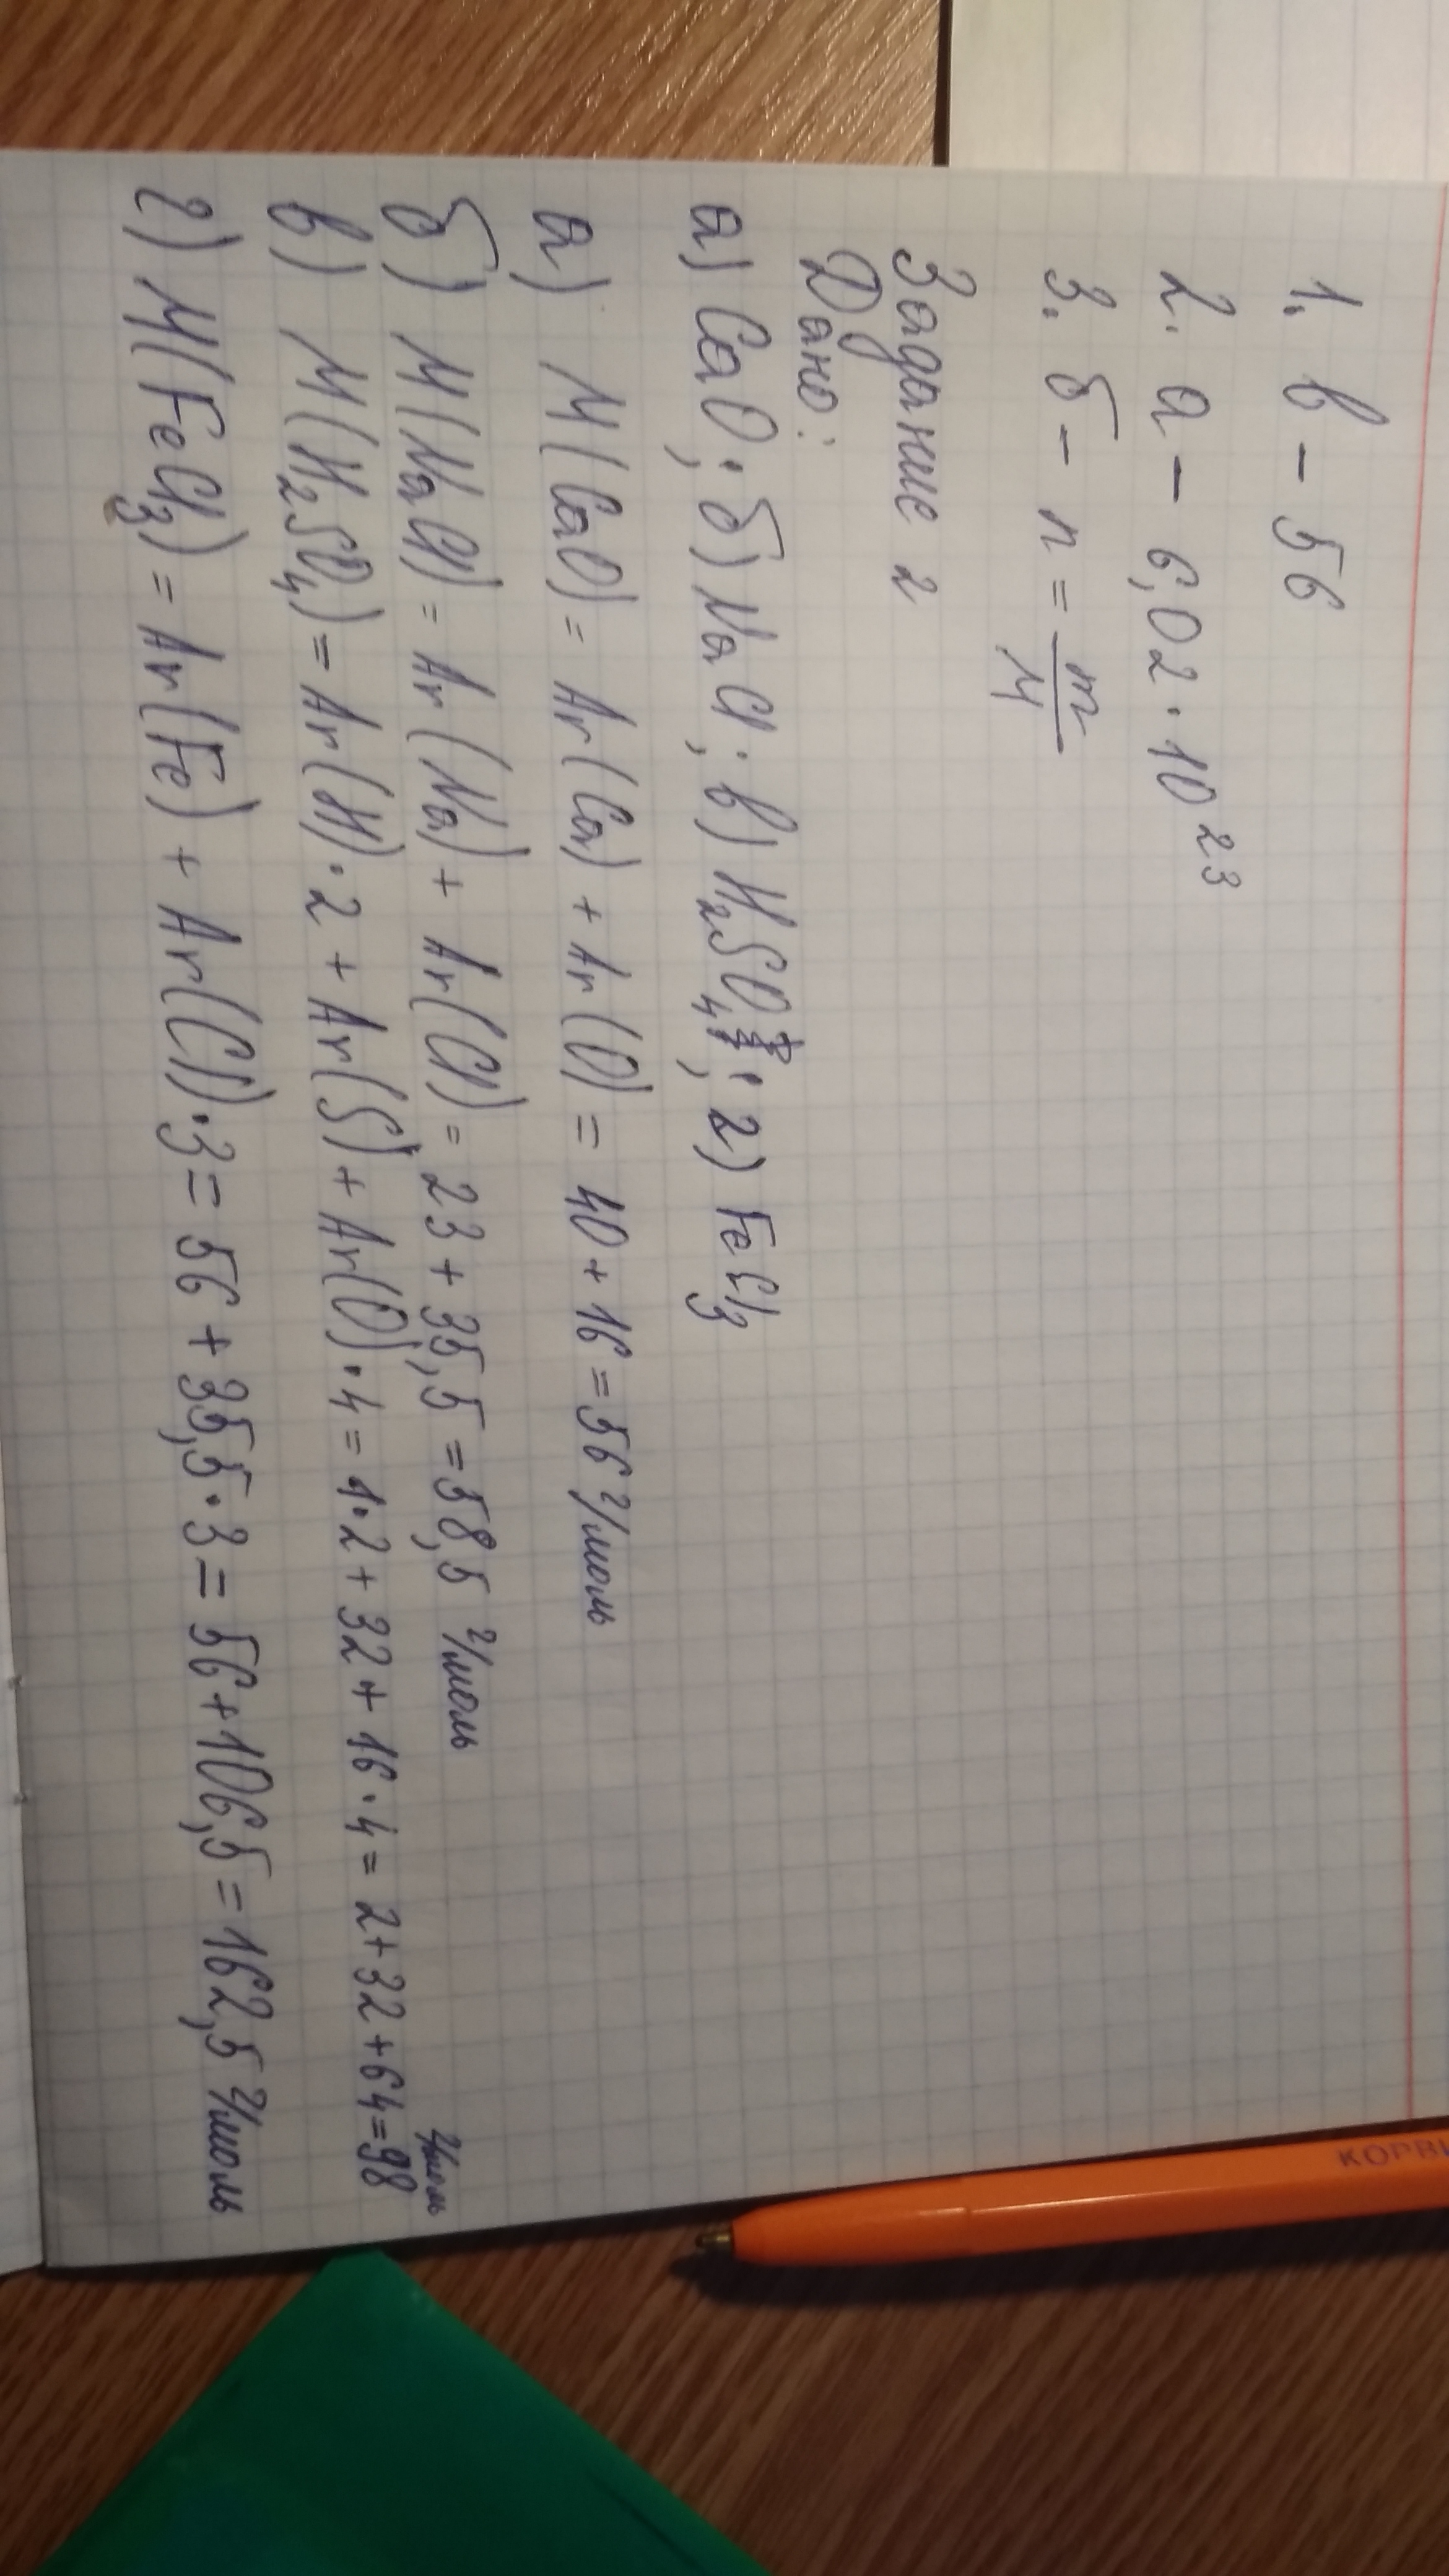 1. в – 56
2. а – 6,02 · 10²³
3. б – n = m/M
Задание 2
Дано:
а) CaO; б) NaCl; в) H₂SO₄; г) FeCl₃
а) M(CaO) = Ar(Ca) + Ar(O) = 40 + 16 = 56 г/моль
б) M(NaCl) = Ar(Na) + Ar(Cl) = 23 + 35,5 = 58,5 г/моль
в) M(H₂SO₄) = Ar(H)·2 + Ar(S) + Ar(O)·4 = 1·2 + 32 + 16·4 = 2+32+64=98 г/моль
г) M(FeCl₃) = Ar(Fe) + Ar(Cl)·3 = 56 + 35,5·3 = 56+106,5 = 162,5 г/моль